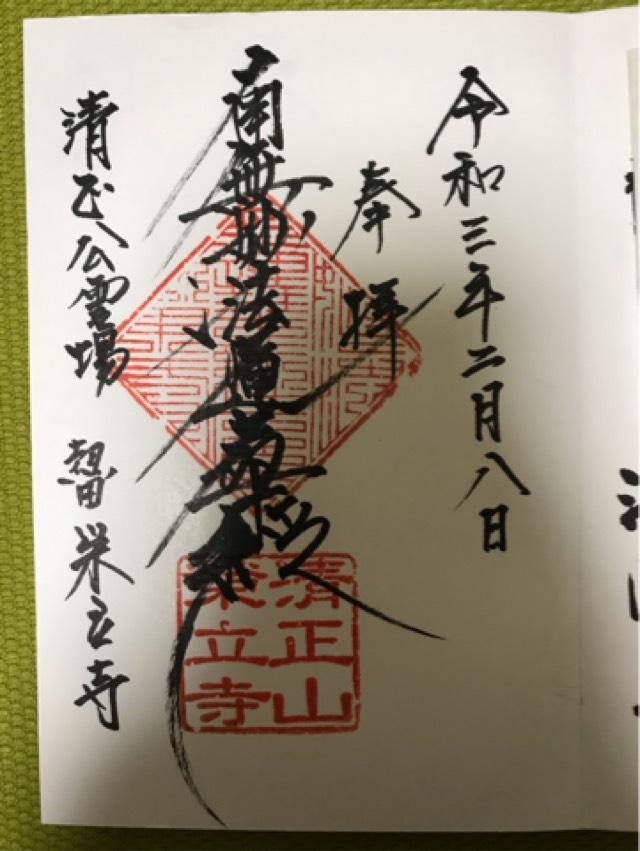 令和三年二月八日
奉拝
南無妙法蓮華経
清正公霊場 熱田 栄立寺
清正山
栄立寺